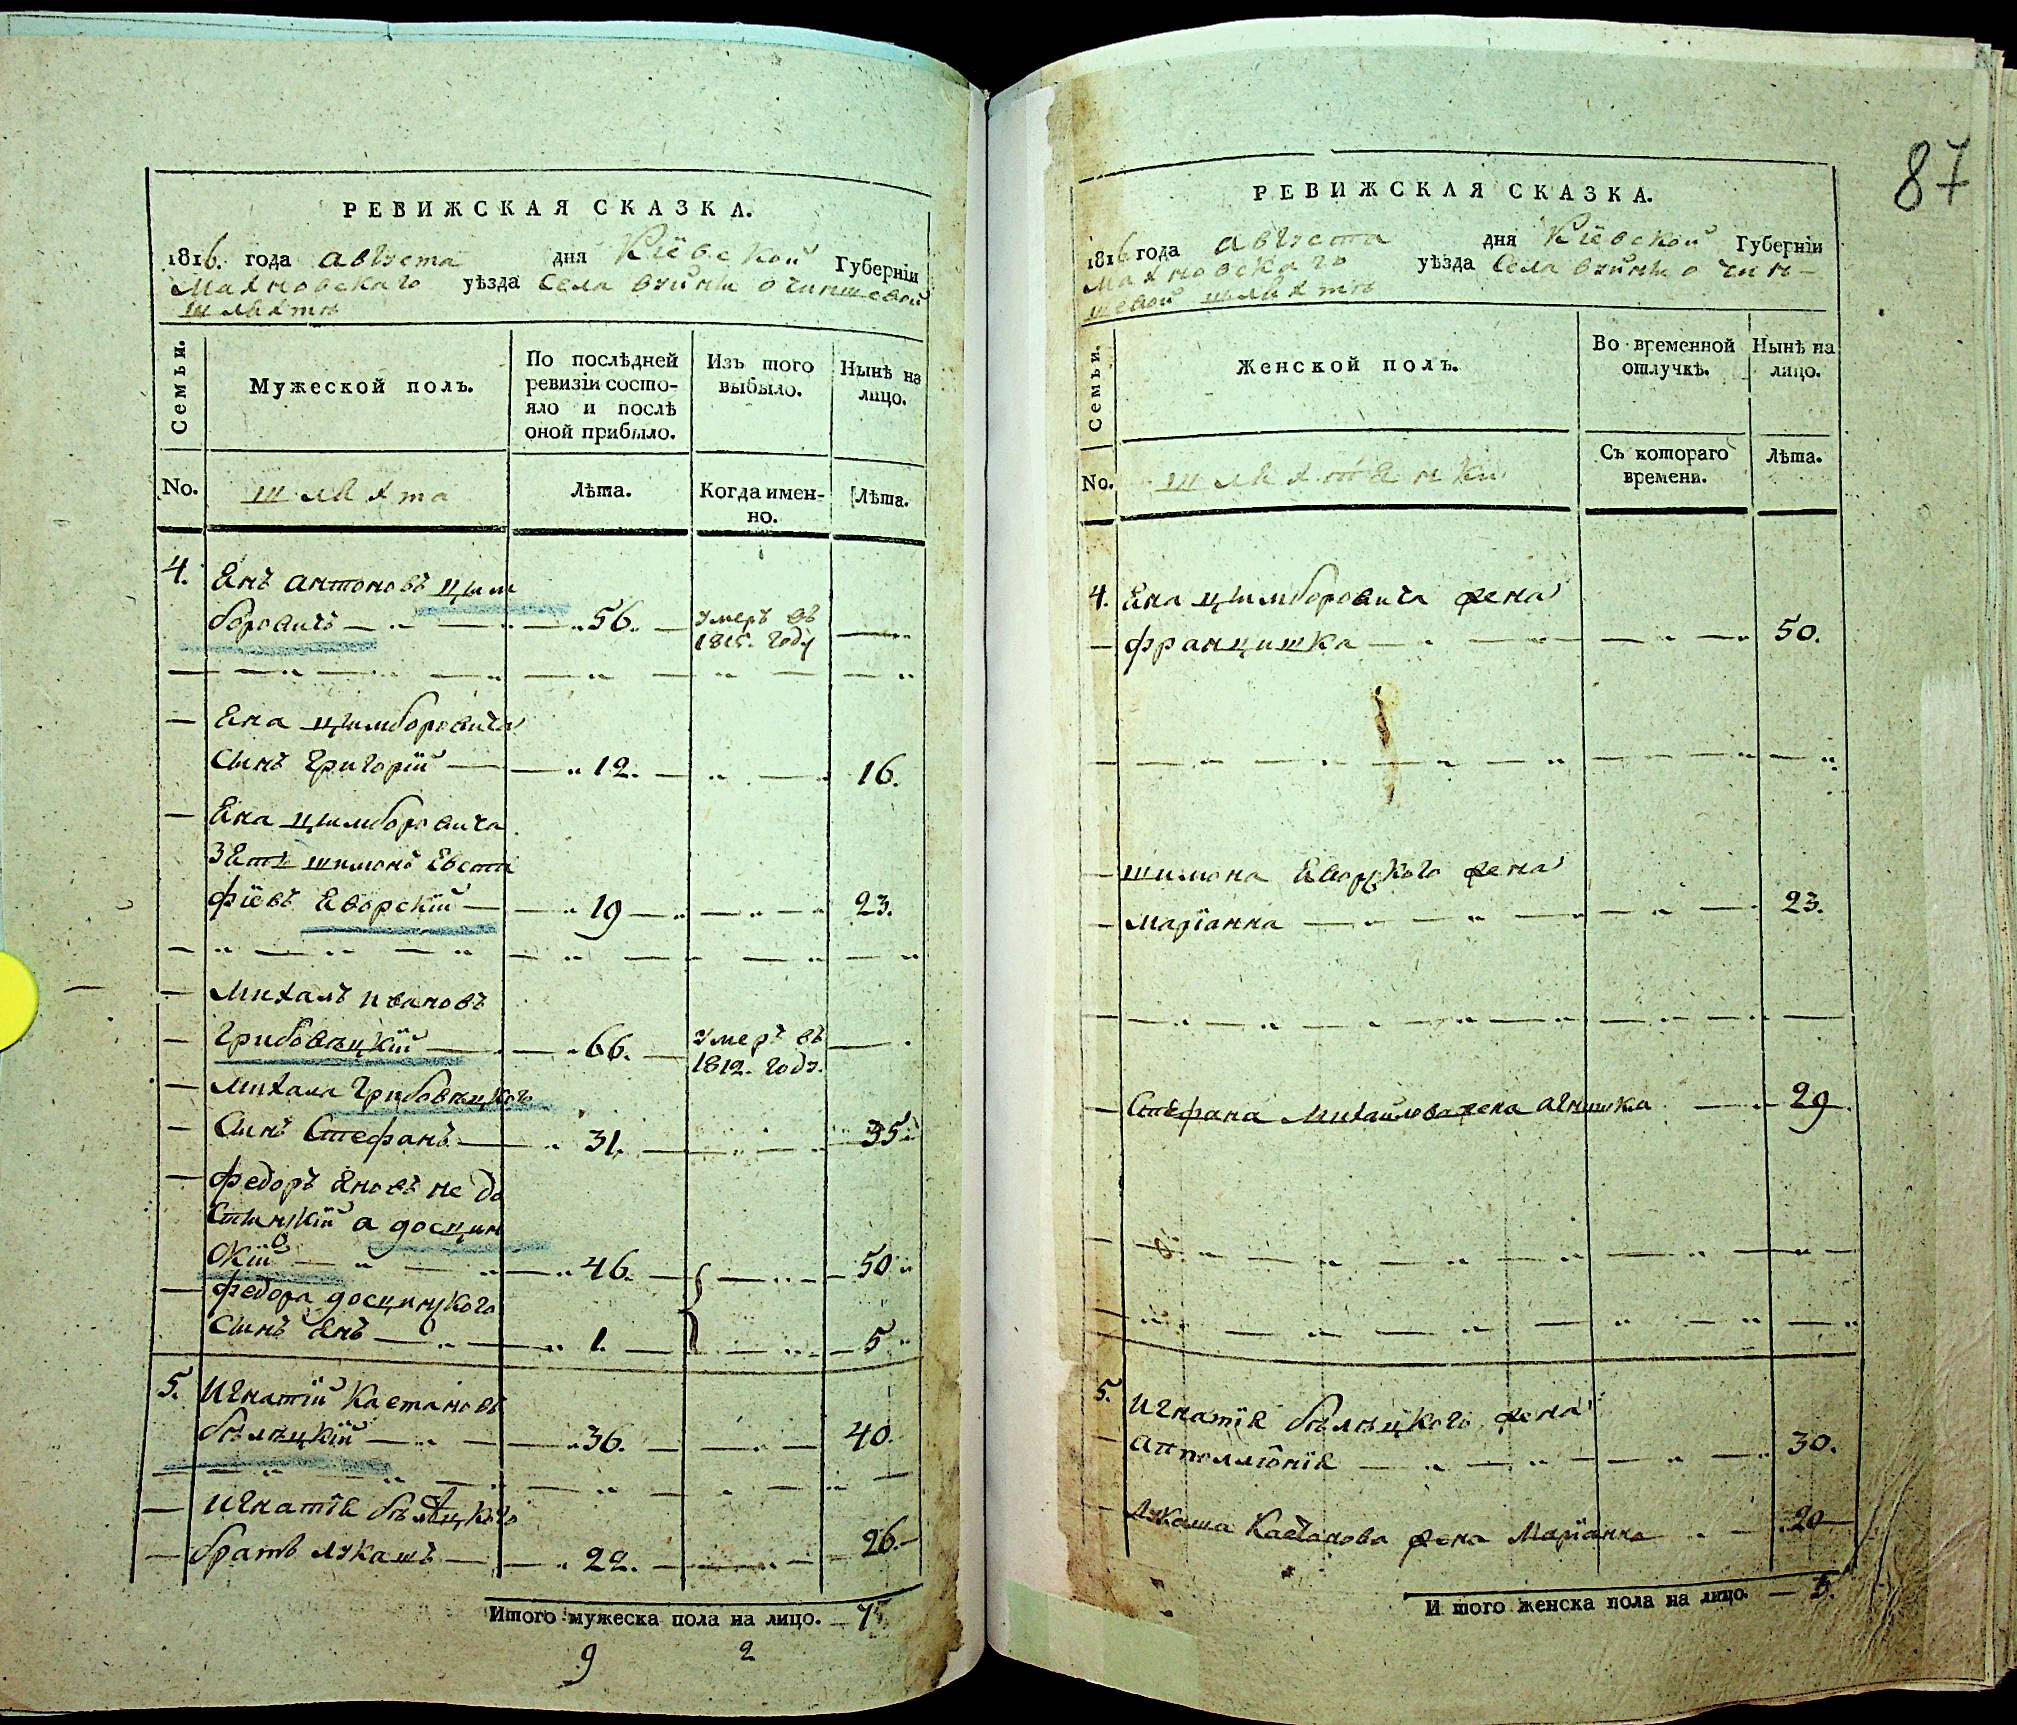 РЕВИЖСКАЯ СКАЗКА.
1816. года августа дня Кіевской Губерніи
Махновскаго уѣзда Села о чиншевой
шляхтѣ
Семьи.
Мужеской полъ.
По послѣдней ревизіи состо-
яло и послѣ
оной прибыло.
Изъ того
выбыло.
Нынѣ на
лицо.
No.
шляхта
Лѣта.
Когда имен-
но.
Лѣта.
4. Янъ Антоновъ Цим
боровичъ 56. умеръ въ
1815. году
Яна Цимборовича
Синъ Григорій 12. 16.
Яна Цимборовича
зять Шимонъ Евста
фіевъ Яворскій 19 23.
Михалъ Ивановъ
Грибовѣцкій 66. умеръ въ
1812. году.
Михала Грибовѣцкого
Синъ Стефанъ 31. 35
Федоръ Яновъ не до
а досцин
скій 46. 50
Федора досцинского
Синъ Янъ 1. 5
5. Игнатій Каетановъ
бѣлѣцкій 36. 40.
Игнатія бѣлѣцкого
братъ Лукашъ 22. 26.
Итого мужеска пола на лицо. 7
9 2
87
РЕВИЖСКАЯ СКАЗКА.
1816 года августа дня Кіевской Губерніи
Махновскаго уѣзда Села о чин-
шевой шляхтѣ
Семьи.
Женской полъ.
Во временной
отлучкѣ.
Нынѣ на
лицо.
No.
шляхтянки
Съ котораго
времени.
Лѣта.
4. Яна Цимборовича жена
Францишка 50.
Шимона Яворского жена
Маріанна 23.
Стефана Михайлова жена Агнишка 29
5. Игнатія бѣлѣцкого жена
Апполлонія 30.
Лукаша Каетанова жена Маріанна 20
И того женска пола на лицо. 5.